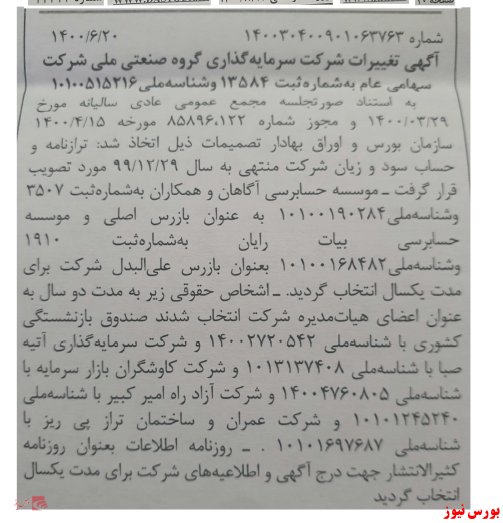 شماره ۱۴۰۰۳۰۴۰۰۹۰۱۰۶۳۷۶۳ ۱۴۰۰/۶/۲۰
آگهی تغییرات شرکت سرمایه‌گذاری گروه صنعتی ملی شرکت
سهامی عام به‌شماره ثبت ۱۳۵۸۴ وشناسه‌ملی ۱۰۱۰۰۵۱۵۲۱۶
به استناد صورتجلسه مجمع عمومی عادی سالیانه مورخ
۱۴۰۰/۰۳/۲۹ و مجوز شماره ۸۵۸۹۶،۱۲۲ مورخه ۱۴۰۰/۴/۱۵
سازمان بورس و اوراق بهادار تصمیمات ذیل اتخاذ شد: ترازنامه و
حساب سود و زیان شرکت منتهی به سال ۹۹/۱۲/۲۹ مورد تصویب
قرار گرفت ـ موسسه حسابرسی آگاهان و همکاران به‌شماره‌ثبت ۳۵۰۷
وشناسه‌ملی ۱۰۱۰۰۱۹۰۲۸۴ به عنوان بازرس اصلی و موسسه
حسابرسی بیات رایان به‌شماره‌ثبت ۱۹۱۰
وشناسه‌ملی ۱۰۱۰۰۱۶۸۴۸۲ بعنوان بازرس علی‌البدل شرکت برای
مدت یکسال انتخاب گردید. ـ اشخاص حقوقی زیر به مدت دو سال به
عنوان اعضای هیات‌مدیره شرکت انتخاب شدند صندوق بازنشستگی
کشوری با شناسه‌ملی ۱۴۰۰۲۷۲۰۵۴۲ و شرکت سرمایه‌گذاری آتیه
صبا با شناسه‌ملی ۱۰۱۳۱۳۷۴۰۸ و شرکت کاوشگران بازار سرمایه با
شناسه‌ملی ۱۴۰۰۴۷۶۰۸۰۵ و شرکت آزاد راه امیر کبیر با شناسه‌ملی
۱۰۱۰۱۲۴۵۲۴۰ و شرکت عمران و ساختمان تراز پی ریز با
شناسه‌ملی ۱۰۱۰۱۶۹۷۶۸۷ . ـ روزنامه اطلاعات بعنوان روزنامه
کثیرالانتشار جهت درج آگهی و اطلاعیه‌های شرکت برای مدت یکسال
انتخاب گردید
بورس نیوز